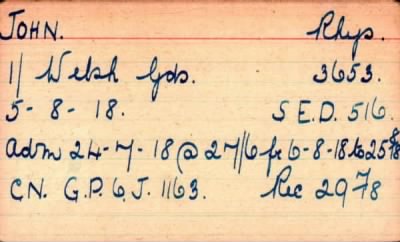 JOHN. Rhys.
1/ Welsh Gds. 3653.
5-8-18. S.E.D. 516.
adm 24-7-18 @ 27/6 fr 6-8-18 to 25/8/18
CN. G.P. 6. J. 1163. Rec 29/8